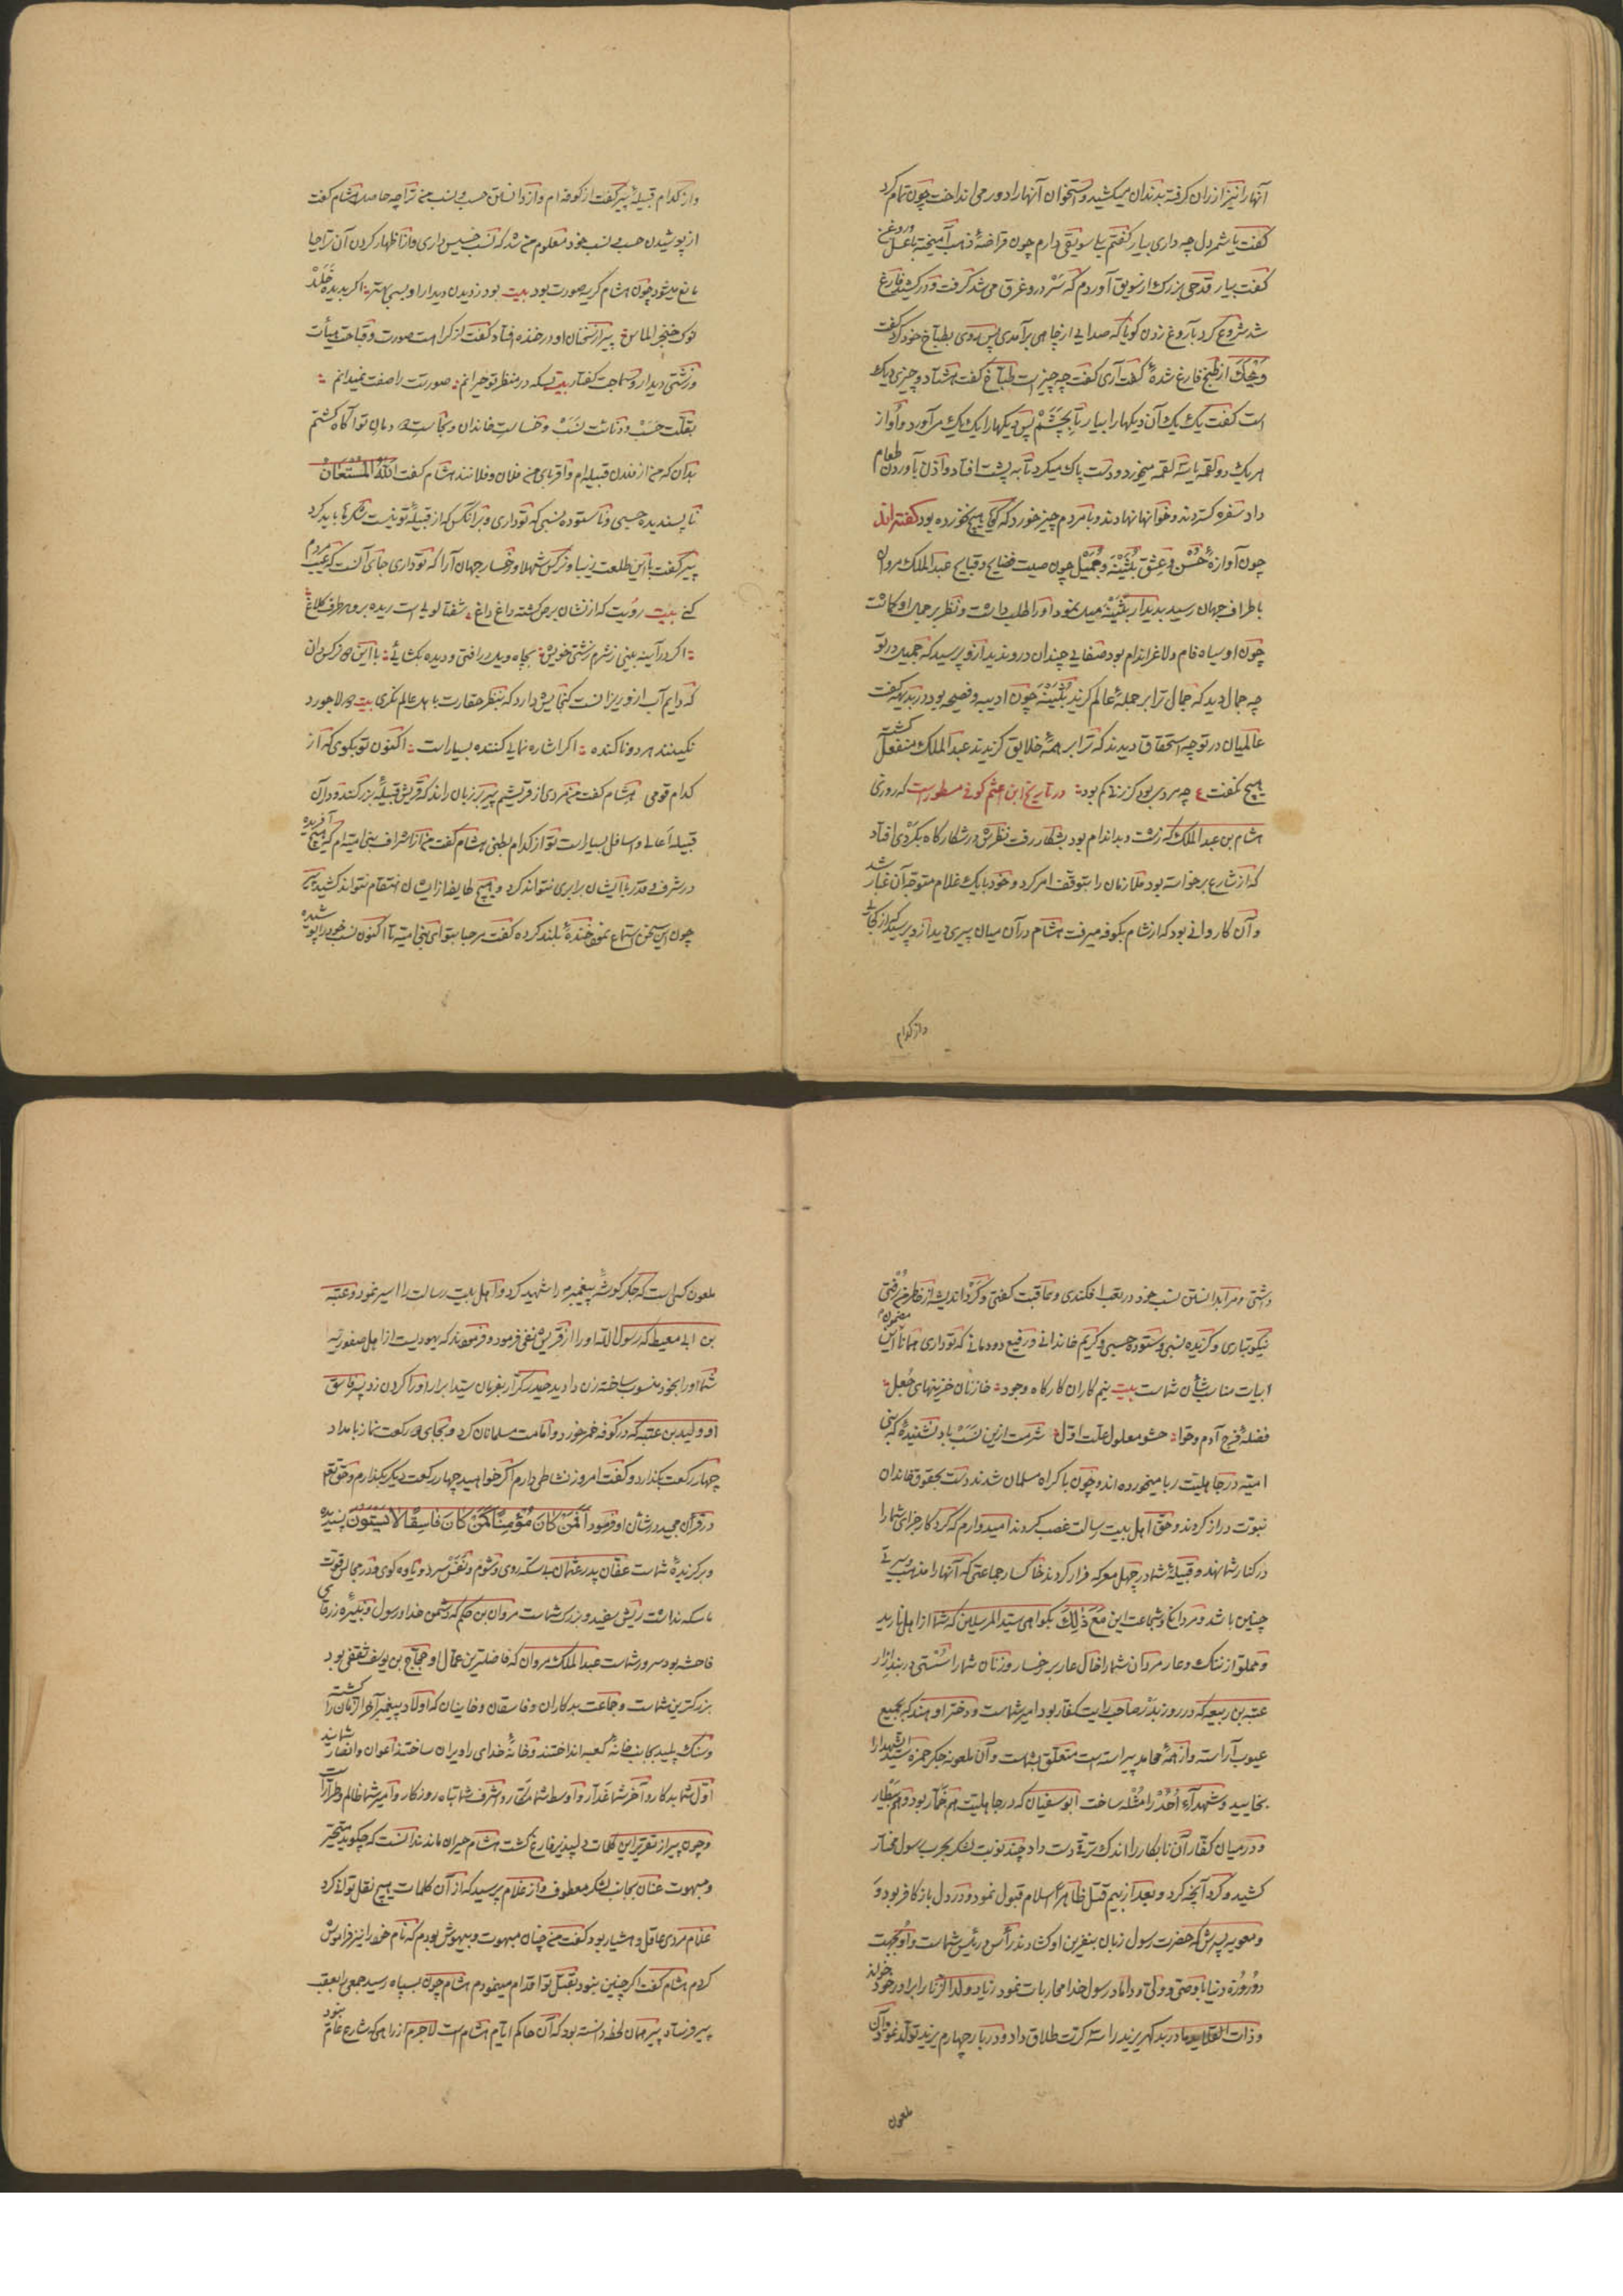 آنها را نیز از ران گرفته بدندان میکشید و استخوان آنها را دور می انداخت چون تمام کرد
گفت یا شمردل چه داری بیار گفتم بلی سویقی دارم چون قراضهٔ ذهب آمیخته با عسل و روغن
گفت بیار قدحی بزرک از سویق آوردم که سر درو غرق می شد گرفت و درکشید فارغ
شد شروع کرد بآروغ زدن گویا که صدایی از چاهی برآمدی پس روی بطباخ خود کرد گفت
ویحک از طبخ فارغ شدهٔ گفت آری گفت چه چیز است طباخ گفت هشتاد و چیزی دیک
است گفت یک یک آن دیکها را بیار تا بچشم پس دیکها را یک یک می آورد و او از
هر یک دو لقمه یا سه لقمه میخورد و دست پاک میکرد تا به پشت افتاد و اذن بآوردن طعام
داد سفره کستردند و خوانها نهادند و با مردم چیز خورد که گویا هیچ نخورده بود گفته اند
چون آوازهٔ حسن و عشق بثینه و جمیل چون صیت فضایح و قبایح عبد الملک مروان
باطراف جهان رسید بدیدار بثینه میل نمود او را طلب داشت و نظر بر جمال او کماشت
چون او سیاه فام و لاغر اندام بود صفایی چندان درو ندید ازو پرسید که جمیل در تو
چه جمال دید که جمال ترا بر جملهٔ عالم کزید بثینه چون ادیبه و فصیحه بود در بدیهه گفت
عالمیان در تو چه استحقاق دیدند که ترا بر همهٔ خلایق کزیدند عبد الملک منفعل کشت
هیچ نگفت ع چه مردی بود کز زنی کم بود در تاریخ ابن اعثم کوفی مسطور است که روزی
هشام بن عبد الملک که زشت و بد اندام بود بشکار رفت نظرش در شکارکاه بکردی افتاد
که از شارع برخواسته بود ملازمان را بتوقف امر کرد و خود با یک غلام متوجه آن غبار شد
و آن کاروانی بود که از شام بکوفه میرفت هشام در آن میان پیری دید ازو پرسید که از کجایی
و از کدام
و از کدام قبیلهٔ پیر گفت از کوفه ام و از دانستن حسب و نسب من ترا چه حاصل هشام گفت
از پوشیدن حسب و نسب خود معلوم من شد که نسب خسیس داری و از اظهار کردن آن ترا حیا
مانع میشود چون هشام کریه صورت بود بیت بود ز دیدن دیدار او بسی بهتر اکر بدیده خلد
نوک خنجر الماس پیر از سخنان او در خنده افتاد گفت از کراهت صورت و قباحت هیأت
و زشتی دیدار و سماجت گفتار بیت بسکه در منظر تو حیرانم صورتت را صفت نمیدانم
بقلت حسب و دنائت نسب و خساست خاندان و نجاست دودمان تو آکاه کشتم
بدان که من از فلان قبیله ام و اقربای من فلان و فلانند هشام گفت الله المستعان
نا پسندیده حسبی و ناستوده نسبی که تو داری و بر آنکس که از قبیلهٔ تو نیست شکرها باید کرد
پیر گفت با این طلعت زیبا و نرکس شهلا و رخسار جهان آرا که تو داری جای آنست که عیب مردم
کنی بیت رویت که از نشان برص کشته داغ داغ شفتالویی است ریده برو هر طرف کلاغ
اکر در آینه بینی ز شرم زشتی خویش بچاه ویل در افتی و دیده نکشائی با این دو نرکس دان
که دایم آب ازو ریزانست کنجایش دارد که بنظر حقارت باهل عالم نکری بیت دو لاجورد
نکینند هر دو ناکنده اکر اشاره نمایی کننده بسیار است اکنون تو بکوی که از
کدام قومی هشام گفت من مردی از قریشم پیر بر زبان راند که قریش قبیلهٔ بزرکند و در آن
قبیله اعالی و اسافل بسیار است تو از کدام بطنی هشام گفت من از اشراف بنی امیه ام که هیچ آفریده
در شرف و قدر با ایشان برابری نتواند کرد و هیچ طایفه از ایشان انتقام نتواند کشید پیر
چون این سخن استماع نمود خندهٔ بلند کرده گفت مرحبا بتو ای بنی امیه تا اکنون نسب خود را پوشیده
داشتی و مرا بدانستن نسب خود در تعب افکندی و عاقبت گفتی و کرد اندیشه از خاطر من رفتی
نیکو تباری و کزیده نسبی و ستوده حسبی و کریم خاندانی و رفیع دودمانی که تو داری همانا این مضمون
ابیات مناسب شأن شماست بیت نیم کاران کارکاه وجود خازنان خزینهای جعل
فضلهٔ فرج آدم و حوا حشو معلول علت اول شرمت ازین نسب باد نشنیدهٔ که بنی
امیه در جاهلیت ربا میخورده اند و چون باکراه مسلمان شدند دست بحقوق خاندان
نبوت دراز کردند و حق اهل بیت رسالت غصب کردند امیدوارم که کردکار جزای شما را
در کنار شما نهد و قبیلهٔ شما در چهل معرکه فرار کردند خاکسار جماعتی که آنها را مذهب و سیرتی
چنین باشد و مردانکی و شجاعت این مع ذلک بکواهی سید المرسلین که شما از اهل نارید
و مملو از ننک و عار مردان شما را خاک عار بر رخسار و زنان شما را سستی در بند ازار
عتبه بن ربیعه که در روز بدر صاحب رایت کفار بود امیر شماست و دختر او هند که بجمیع
عیوب آراسته و از همهٔ محامد پیراسته است متعلق بشماست و آن ملعونه جکر حمزه سید الشهدا را
بخایید و شهدآء احد را مثله ساخت ابو سفیان که در جاهلیت هم خمار بود و هم بیطار
و در میان کفار آن نابکار را اندک ترقی دست داد چند نوبت لشکر بحرب رسول مختار
کشید و کرد آنچه کرد و بعد از بیم قتل ظاهراً اسلام قبول نمود و در دل باز کافر بود و
و معویه پسرش که حضرت رسول زبان بنفرین او کشادند رأس و رئیس شماست و او بجهت
دو روزه دنیا با وصی و ولی و داماد رسول خدا محاربات نمود زیاد ولد الزنا را برادر خود خواند
و ذات القلاید مادر بدکهر یزید را سه کرت طلاق داد و در بار چهارم یزید تولد نمود و آن
ملعون
ملعون کسی است که جکر کوشهٔ پیغمبر را شهید کرد و اهل بیت رسالت را اسیر نمود و عتبه
بن ابی معیط که رسول الله او را از قریش نفی فرمود و فرمودند که یهودیست از اهل صفوریه
شما او را بخود منسوب ساخته زن دادید حیدر کرار بفرمان سید ابرار او را کردن زد پسر فاسق
او ولید بن عتبه که در کوفه خمر خورد و امامت مسلمانان کرد و بجای دو رکعت نماز بامداد
چهار رکعت بکذارد و گفت امروز نشاطی دارم اکر خواهید چهار رکعت دیکر بکذارم و حق تعم
در قرآن مجید در شأن او فرمود أفمن کان مؤمنا کمن کان فاسقا لا یستون پسندیده
و برکزیدهٔ شماست عفان پدر عثمان بسکه روی و شوم و نفس سرد و یاوه کوی قدر مجالس قوت
ماسکه نداشت ریش سفید و بزرک شماست مروان بن حکم که دشمن خدا و رسول و نبیرهٔ زرقای
فاحشه بود سرور شماست عبد الملک مروان که فاضلترین عمال او حجاج بن یوسف ثقفی بود
بزرکترین شماست و جماعت بدکاران و فاسقان و خاینان که اولاد پیغمبر آخر الزمان را کشته
و سنک پلید بجانب خانهٔ کعبه انداختند و خانهٔ خدای را ویران ساختند اعوان و انصار شمایند
اول شما بدکار و آخر شما غدار و اوسط شما مکار و شرف شما تباه روزکار و امیر شما ظالم و طرار است
و چون پیر از تقریر این کلمات دلپذیر فارغ کشت هشام حیران ماند ندانست که چکوید متحیر
و مبهوت عنان بجانب لشکر معطوف و از غلام پرسید که از آن کلمات هیچ نقل توانی کرد
غلام مردی عاقل و هشیار بود گفت من چنان مبهوت و بیهوش بودم که نام خود را نیز فراموش
کردم هشام گفت اکر چنین نبود بقتل تو اقدام مینمودم هشام چون بسپاه رسید جمعی را بعقب
پیر فرستاد پیر همان لحظه دانسته بود که آن حاکم ایام هشام است لاجرم از راهی که شارع عام نبود